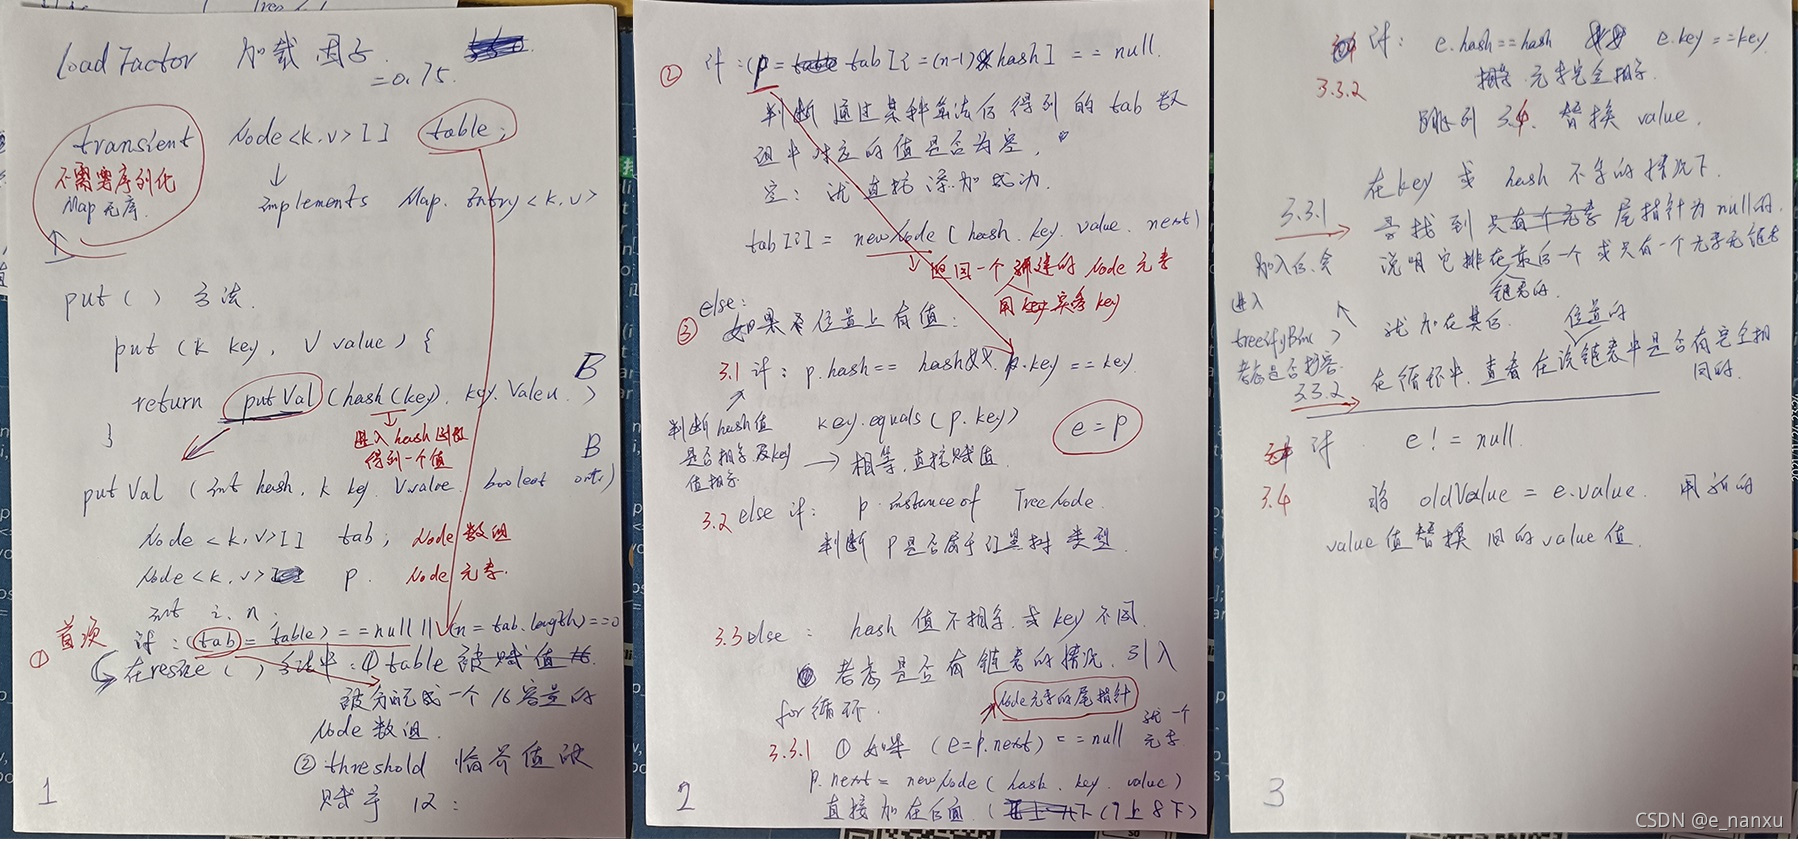 loadFactor 加载因子.
=0.75.
transient Node<K,V>[] table;
不需要序列化
Map无序.
implements Map.Entry<K,V>
put() 方法.
put (K key, V value) {
return putVal (hash(key), key, value, )
}
进入hash函数
得到一个值
putVal (int hash, K key, V value, boolean
Node<K,V>[] tab; Node数组
Node<K,V> p. Node元素.
int i, n
① 首次 if: (tab = table) == null || (n = tab.length) == 0
在resize()方法中: ① table 被赋值16.
被分配成一个16容量的
Node数组.
② threshold 临界值被
赋予 12:
1
② if: (p = table tab[i = (n-1) & hash] == null.
判断通过某种算法后得到的tab数
组中对应的值是否为空.
空: 就直接添加成功.
tab[i] = newNode (hash, key, value, next)
返回一个新建的Node元素
用key 实参key
else:
③ 如果该位置上有值:
3.1 if: p.hash == hash && p.key == key.
判断hash值
是否相等及key
值相等
key.equals(p.key)
→ 相等,直接赋值
e = p
3.2 else if: p instanceof TreeNode.
判断p是否属于红黑树类型.
3.3 else: hash值不相等或key不同.
考虑是否有链表的情况.引入
for循环.
Node元素的尾指针
3.3.1 ① 如果 (e=p.next) == null 就一个
元素
p.next = newNode (hash, key, value)
直接加在后面. (7上8下)
2
if: e.hash==hash && e.key==key
3.3.2 相等 元素完全相等.
跳到 3.4. 替换 value.
在key 或 hash 不等的情况下.
3.3.1 寻找到只有一个元素 尾指针为null的.
加入后,会 说明它排在最后一个或只有一个元素无链表
链表的.
进入
treeifyBin()
考虑是否扩容
就加在其后. 位置的
3.3.2 在循环中,查看在该链表中是否有完全相
同的.
if e != null.
3.4 将 oldValue = e.value. 用新的
value值替换旧的value值.
3
CSDN @e_nanxu